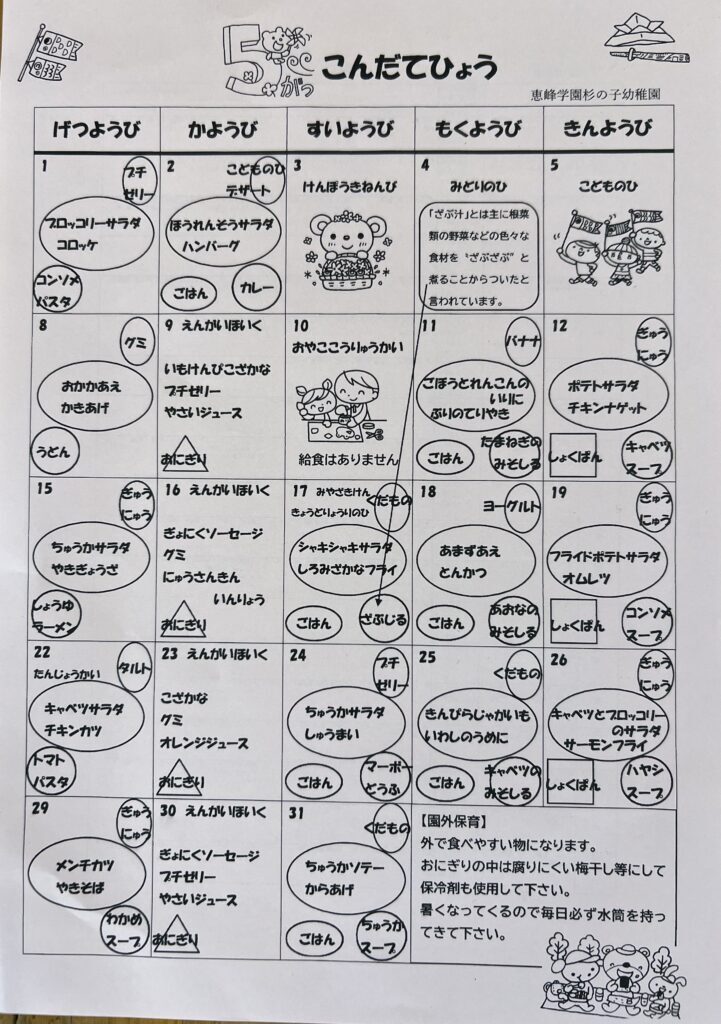 5がつ こんだてひょう
恵峰学園杉の子幼稚園
げつようび かようび すいようび もくようび きんようび
1
プチ
ゼリー
ブロッコリーサラダ
コロッケ
コンソメ
パスタ
2
こどものひ
デザート
ほうれんそうサラダ
ハンバーグ
ごはん カレー
3
けんぽうきねんび
4
みどりのひ
「ざぶ汁」とは主に根菜
類の野菜などの色々な
食材を“ざぶざぶ”と
煮ることからついたと
言われています。
5
こどものひ
8
グミ
おかかあえ
かきあげ
うどん
9 えんがいほいく
いもけんぴこざかな
プチゼリー
やさいジュース
おにぎり
10
おやここうりゅうかい
給食はありません
11
バナナ
ごぼうとれんこんの
いりに
ぶりのてりやき
ごはん
たまねぎの
みそしる
12
ぎゅう
にゅう
ポテトサラダ
チキンナゲット
しょくぱん
キャベツ
スープ
15
ぎゅう
にゅう
ちゅうかサラダ
やきぎょうざ
しょうゆ
ラーメン
16 えんがいほいく
ぎょにくソーセージ
グミ
にゅうさんきん
いんりょう
おにぎり
17 みやざきけん
きょうどりょうりのひ
くだもの
シャキシャキサラダ
しろみざかなフライ
ごはん ざぶじる
18
ヨーグルト
あまずあえ
とんかつ
ごはん
あおなの
みそしる
19
ぎゅう
にゅう
フライドポテトサラダ
オムレツ
しょくぱん
コンソメ
スープ
22
たんじょうかい
タルト
キャベツサラダ
チキンカツ
トマト
パスタ
23 えんがいほいく
こざかな
グミ
オレンジジュース
おにぎり
24
プチ
ゼリー
ちゅうかサラダ
しゅうまい
ごはん
マーボー
どうふ
25
くだもの
きんぴらじゃがいも
いわしのうめに
ごはん
キャベツの
みそしる
26
ぎゅう
にゅう
キャベツとブロッコリー
のサラダ
サーモンフライ
しょくぱん
ハヤシ
スープ
29
ぎゅう
にゅう
メンチカツ
やきそば
わかめ
スープ
30 えんがいほいく
ぎょにくソーセージ
プチゼリー
やさいジュース
おにぎり
31
くだもの
ちゅうかソテー
からあげ
ごはん
ちゅうか
スープ
【園外保育】
外で食べやすい物になります。
おにぎりの中は腐りにくい梅干し等にして
保冷剤も使用して下さい。
暑くなってくるので毎日必ず水筒を持っ
てきて下さい。